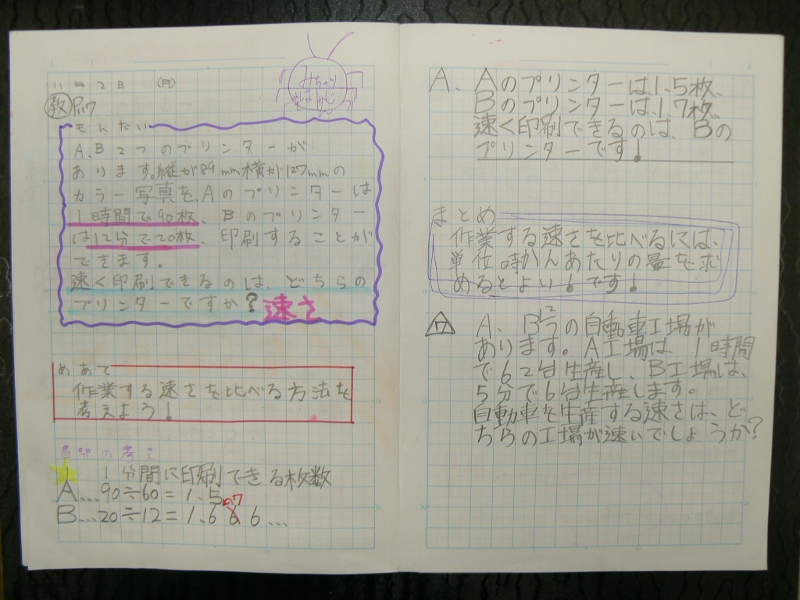 11月2日 (月)
もんだい
A、B2つのプリンターが
あります。縦が89mm横が127mmの
カラー写真をAのプリンターは
1時間で90枚、Bのプリンター
は12分で20枚、印刷することが
できます。
速く印刷できるのは、どちらの
プリンターですか?速さ
めあて
作業する速さを比べる方法を
考えよう!
自分の考え
1分間に印刷できる枚数
A…90÷60=1.5
B…20÷12=1.666…
7
A、Aのプリンターは1.5枚、
Bのプリンターは1.7枚、
速く印刷できるのは、Bの
プリンターです!
まとめ
作業する速さを比べるには、
単位時かんあたりの量を求
めるとよいです!
A、B2つの自動車工場が
あります。A工場は、1時間
で62台生産し、B工場は、
5分で6台生産します。
自動車を生産する速さは、ど
ちらの工場が速いでしょうか?